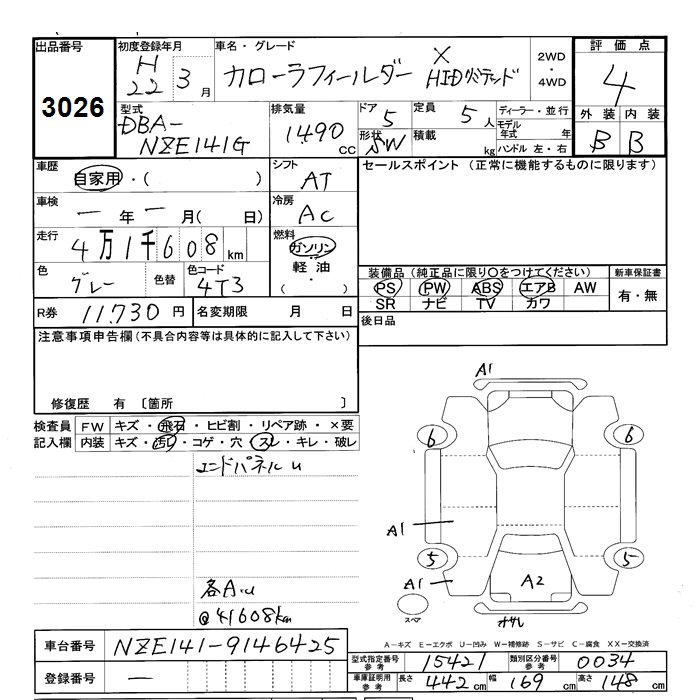 出品番号 初度登録年月 車名・グレード 2WD・4WD 評価点
3026 H22 3月 カローラフィールダー X HIDリミテッド 4
型式 排気量 ドア 定員 ディーラー・並行 外装 内装
DBA-NZE141G 1490cc 5 5人 モデル年式 年 B B
形状 SW 積載 kg ハンドル 左・右
車歴 自家用・( ) シフト AT セールスポイント (正常に機能するものに限ります)
車検 一年一月( 日) 冷房 AC
走行 4万1千608km 燃料 ガソリン 軽油 ( ・ )
色 グレー 色替 色コード 4T3
装備品(純正品に限り○をつけてください) 新車保証書
PS PW ABS エアB AW 有・無
SR ナビ TV カワ
R券 11,730円 名変期限 月 日 後日品
注意事項申告欄(不具合内容等は具体的に記入して下さい)
修復歴 有 〔箇所 〕
検査員 FW キズ・飛石・ヒビ割・リペア跡・×要
記入欄 内装 キズ・汚れ・コゲ・穴・スレ・キレ・破レ
エンドパネルu
各A.u
@41608km
A1
6 6
A1
5 5
A1 A2
スペア
A-キズ E-エクボ U-凹み W-補修跡 S-サビ C-腐食 XX-交換済
車台番号 NZE141-9146425
登録番号 一
型式指定番号 参考 15421 類別区分番号 参考 0034
車庫証明用 参考 長さ 442cm 幅 169cm 高さ 148cm